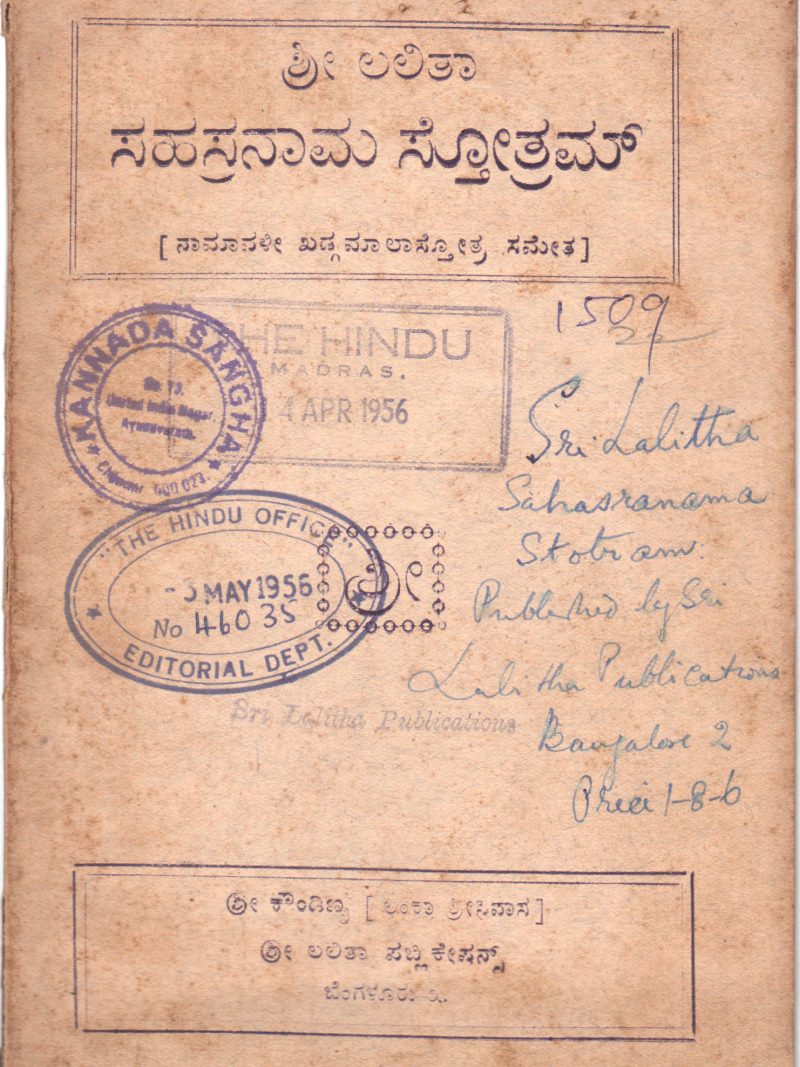 ಶ್ರೀ ಲಲಿತಾ
ಸಹಸ್ರನಾಮ ಸ್ತೋತ್ರಮ್
[ ನಾಮಾವಳೀ ಖಡ್ಗಮಾಲಾಸ್ತೋತ್ರ ಸಮೇತ ]
1509
22
THE HINDU
MADRAS.
4 APR 1956
★ KANNADA SANGHA ★
No. 73,
United India Nagar,
Ayanavaram,
Chennai 600 023.
Sri Lalitha
Sahasranama
Stotram.
Published by Sri
Lalitha Publications
Bangalore 2
Price 1-8-6
"THE HINDU OFFICE"
-3 MAY 1956
No 46035
EDITORIAL DEPT.
ಶ್ರೀ
Sri Lalitha Publications
ಶ್ರೀ ಕೌಂಡಿಣ್ಯ [ ಲಂಕಾ ಶ್ರೀನಿವಾಸ ]
ಶ್ರೀ ಲಲಿತಾ ಪಬ್ಲಿಕೇಷನ್ಸ್
ಬೆಂಗಳೂರು ೨.